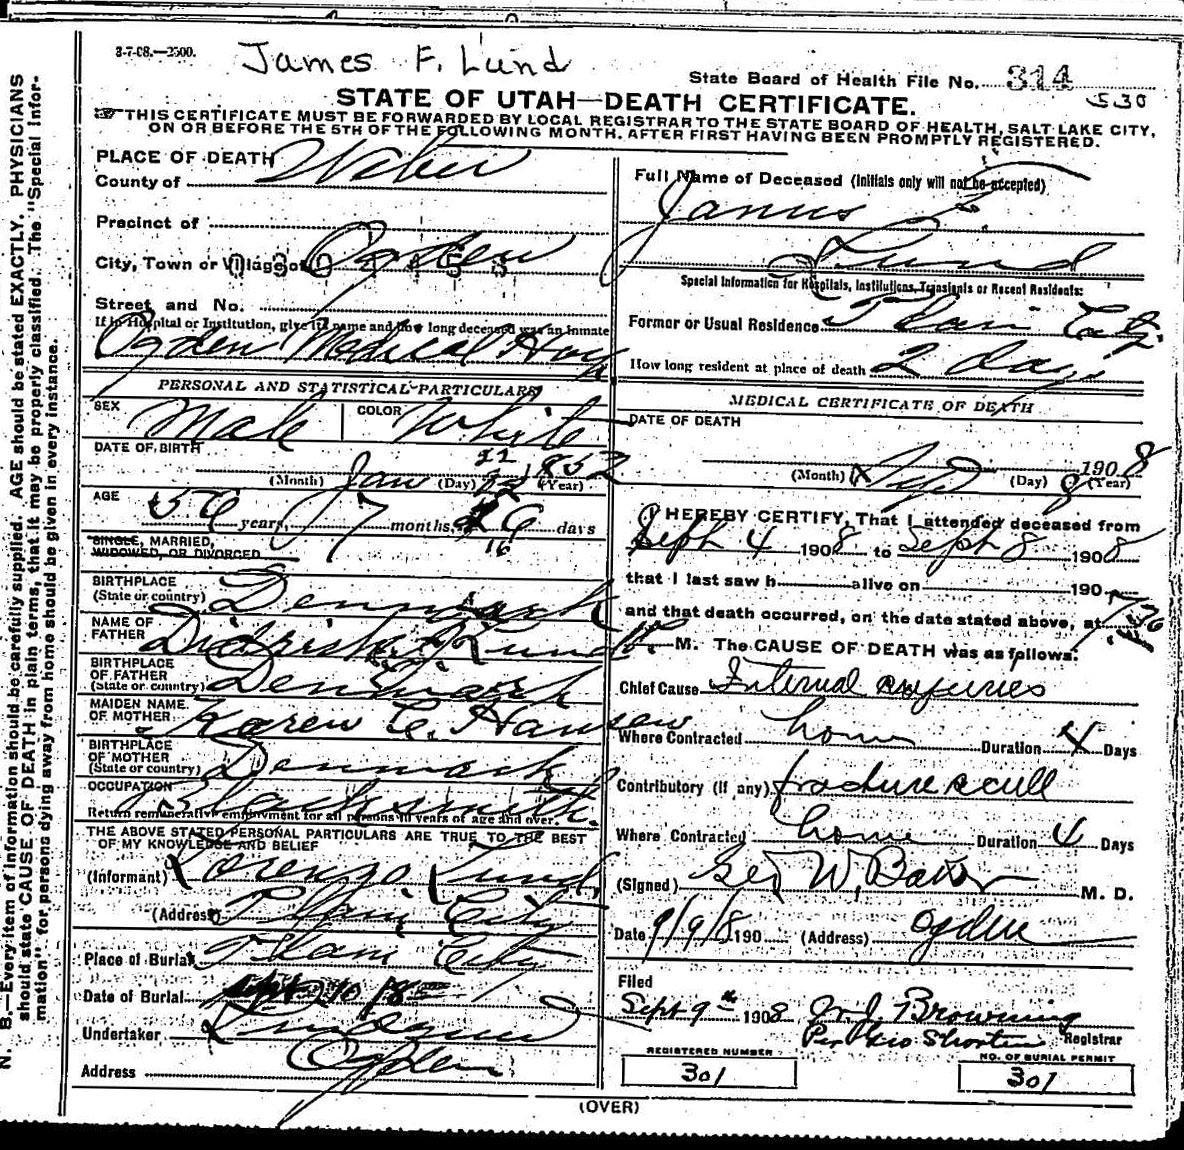 3-7-08.—2500.
James F. Lund
State Board of Health File No. 314
530
STATE OF UTAH—DEATH CERTIFICATE.
THIS CERTIFICATE MUST BE FORWARDED BY LOCAL REGISTRAR TO THE STATE BOARD OF HEALTH, SALT LAKE CITY,
ON OR BEFORE THE 5TH OF THE FOLLOWING MONTH. AFTER FIRST HAVING BEEN PROMPTLY REGISTERED.
N. B.—Every item of information should be carefully supplied. AGE should be stated EXACTLY. PHYSICIANS
should state CAUSE OF DEATH in plain terms, that it may be properly classified. The "Special Infor-
mation" for persons dying away from home should be given in every instance.
PLACE OF DEATH
County of Weber
Precinct of
City, Town or Village of Ogden
Street and No.
If in Hospital or Institution, give its name and how long deceased was an inmate
Ogden Medical Hosp
PERSONAL AND STATISTICAL PARTICULARS
SEX Male COLOR White
DATE OF BIRTH
(Month) Jan (Day) 22 (Year) 1852
AGE
56 years, 7 months, 16 days
SINGLE, MARRIED,
WIDOWED, OR DIVORCED
BIRTHPLACE
(State or country) Denmark
NAME OF
FATHER Lund
BIRTHPLACE
OF FATHER
(State or country) Denmark
MAIDEN NAME
OF MOTHER Karen C. Hansen
BIRTHPLACE
OF MOTHER
(State or country) Denmark
OCCUPATION Blacksmith.
Return remunerative employment for all persons 10 years of age and over.
THE ABOVE STATED PERSONAL PARTICULARS ARE TRUE TO THE BEST
OF MY KNOWLEDGE AND BELIEF
(Informant) Lorenzo Lund,
(Address) Plain City
Place of Burial Plain City
Date of Burial
Undertaker
Address Ogden
Full Name of Deceased (Initials only will not be accepted)
James F.
Lund
Special Information for Hospitals, Institutions, Transients or Recent Residents:
Former or Usual Residence Plain City
How long resident at place of death 2 days
MEDICAL CERTIFICATE OF DEATH
DATE OF DEATH
(Month) Sep (Day) 8 1908 (Year)
I HEREBY CERTIFY, That I attended deceased from
Sept 4 1908 to Sept 8 1908
that I last saw h alive on 190
and that death occurred, on the date stated above, at 7:30
M. The CAUSE OF DEATH was as follows:
Chief Cause Internal enjuries
Where Contracted home Duration 4 Days
Contributory (if any) fracture scull
Where Contracted home Duration 4 Days
(Signed) Geo W. Baker M. D.
Date 9/9/8 190 (Address) Ogden
Filed
Sept 9th 1908 Browning
Per Geo Shorten Registrar
REGISTERED NUMBER
301
NO. OF BURIAL PERMIT
301
(OVER)